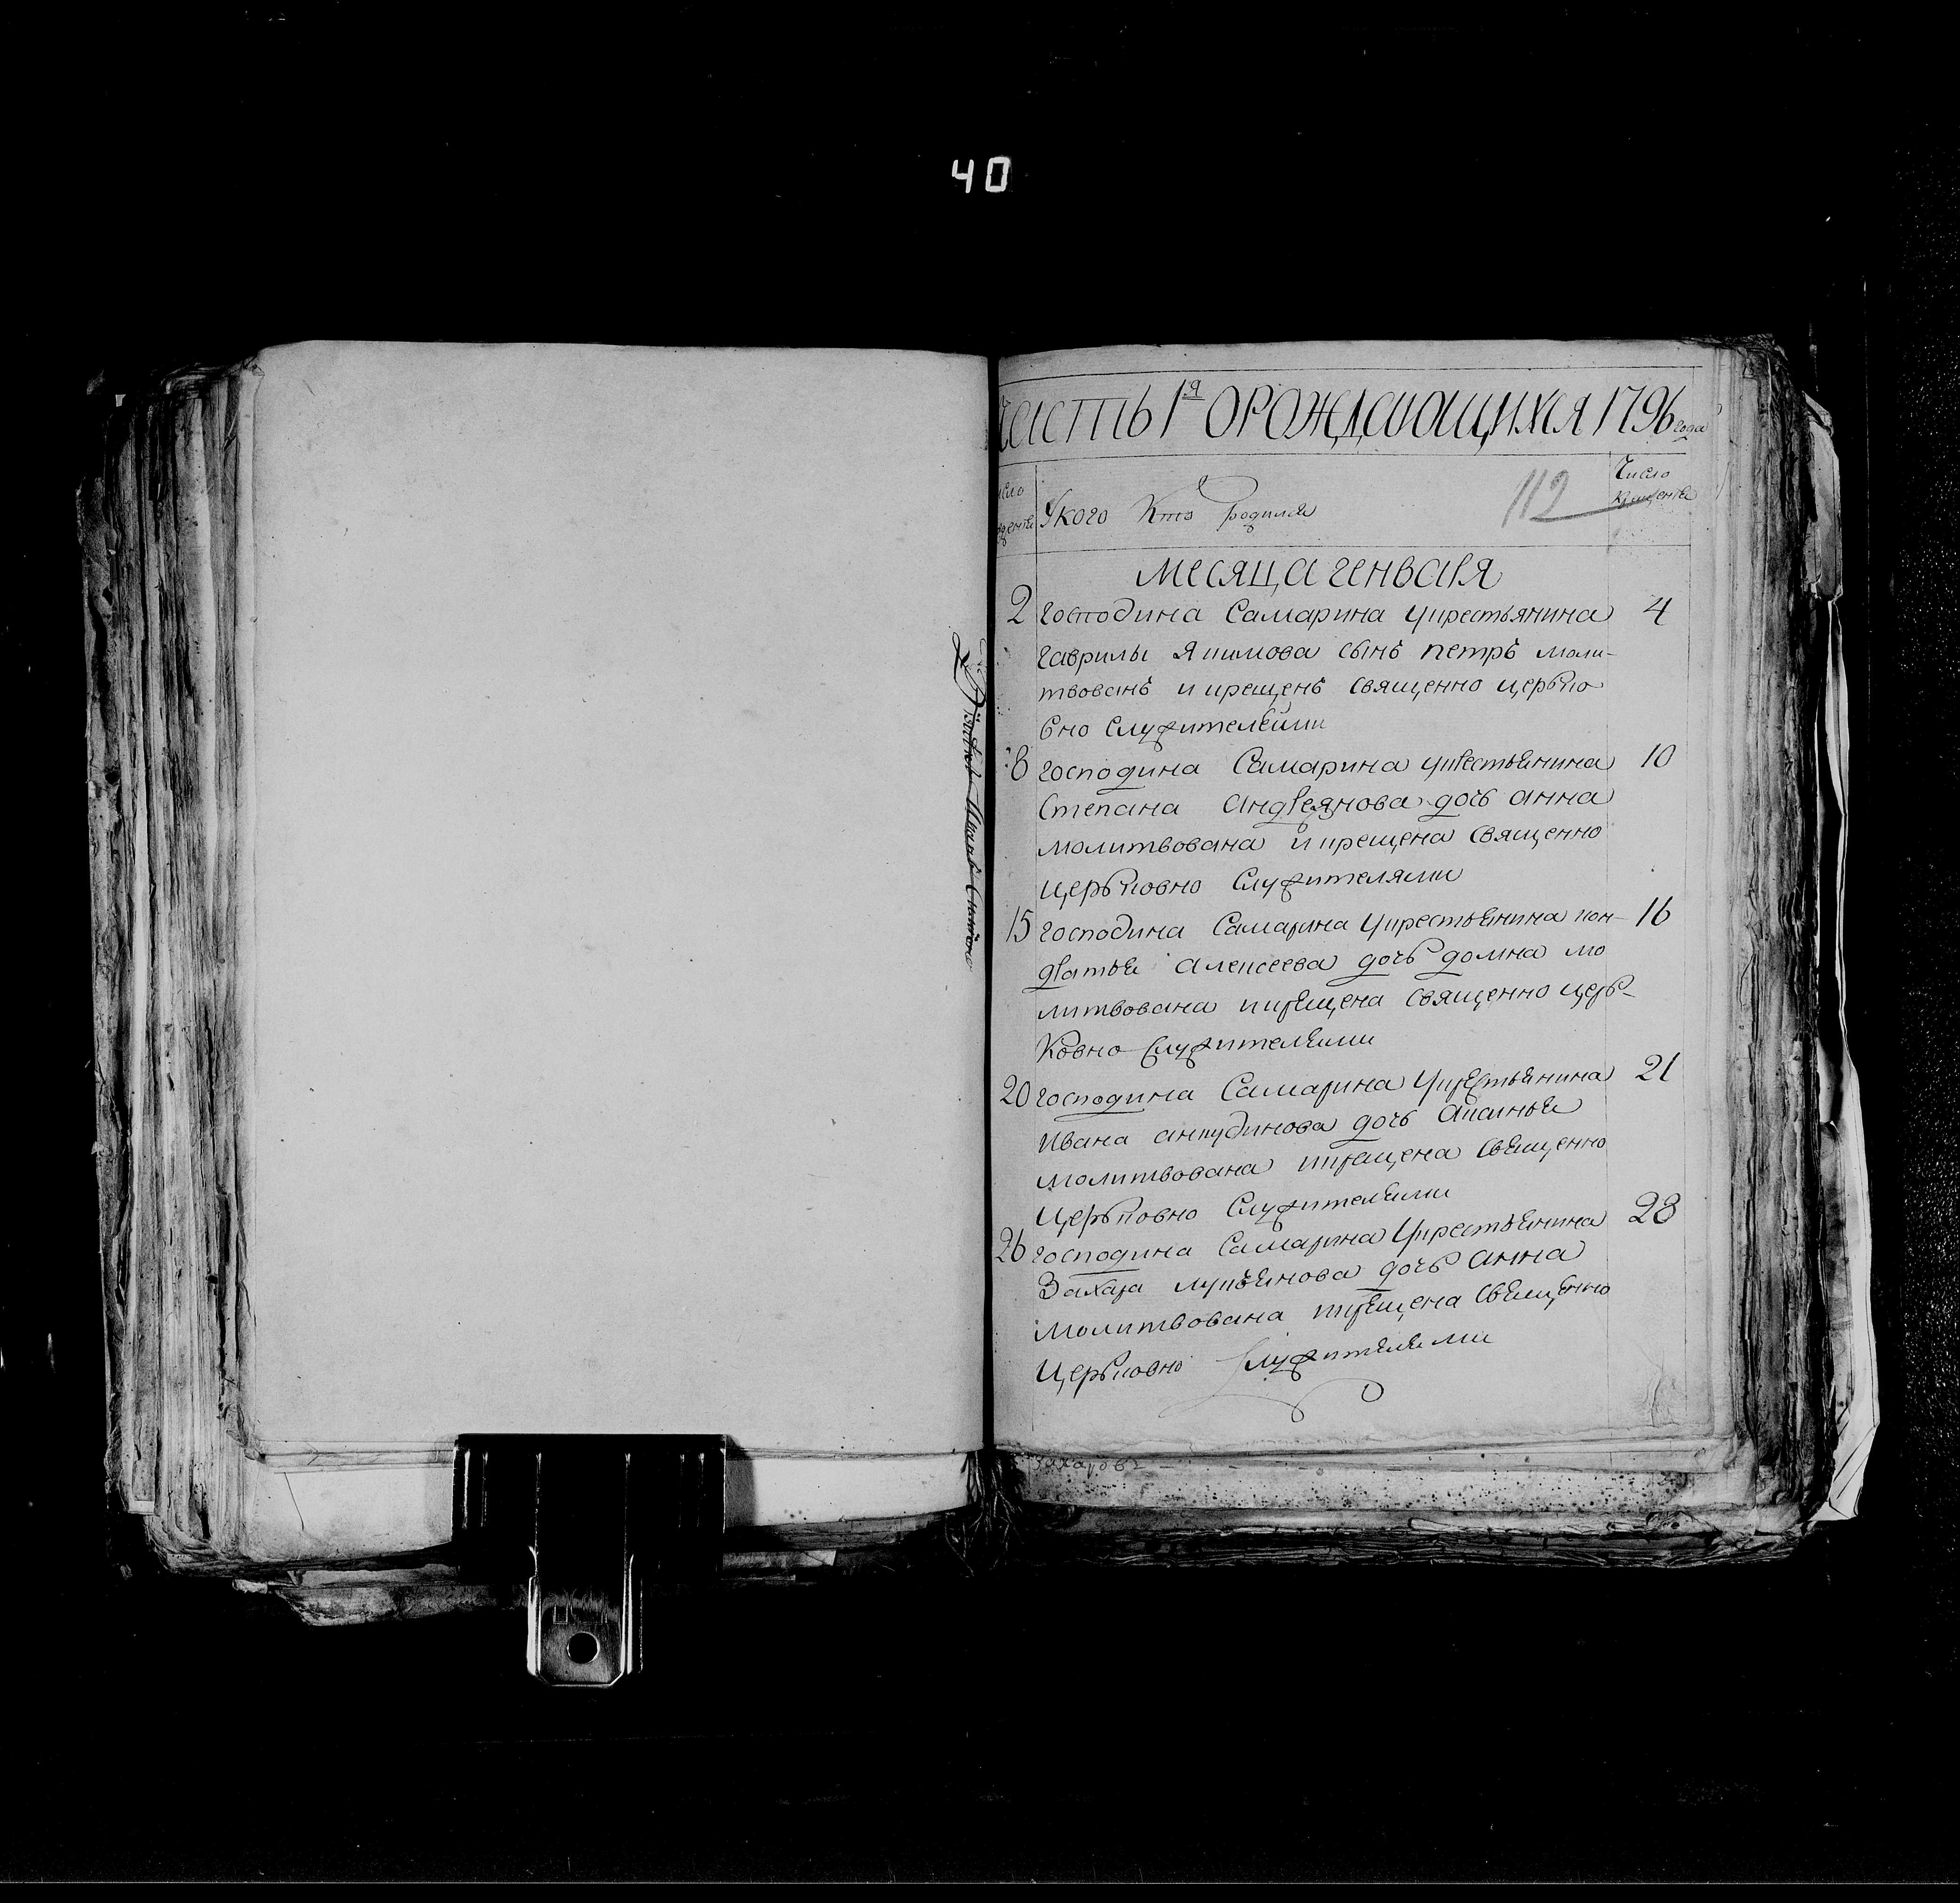 40
часть 1я орождающихся 1796 года
число
рожденія
Укого Кто родился
112
Число
крещенія
месяца генваря
2 господина Самарина укрестьянина 4
гаврилы якимова сынъ петръ моли-
твованъ и крещенъ священно церъко
вно служителями
8 господина Самарина укрестьянина 10
Степана Андреянова дочь анна
молитвована и крещена священно
церъковно служителями
15 господина Самарина укрестьянина кон- 16
дратья Алексеева дочь домна мо
литвована икрещена священно церъ-
ковно служителями
20 господина Самарина укрестьянина 21
ивана анкудинова дочь Аксинья
молитвована икрещена священно
церъковно служителями
26 господина Самарина укрестьянина 28
Захара лукьянова дочь анна
молитвована икрещена священно
церъковно служителями
захаровъ